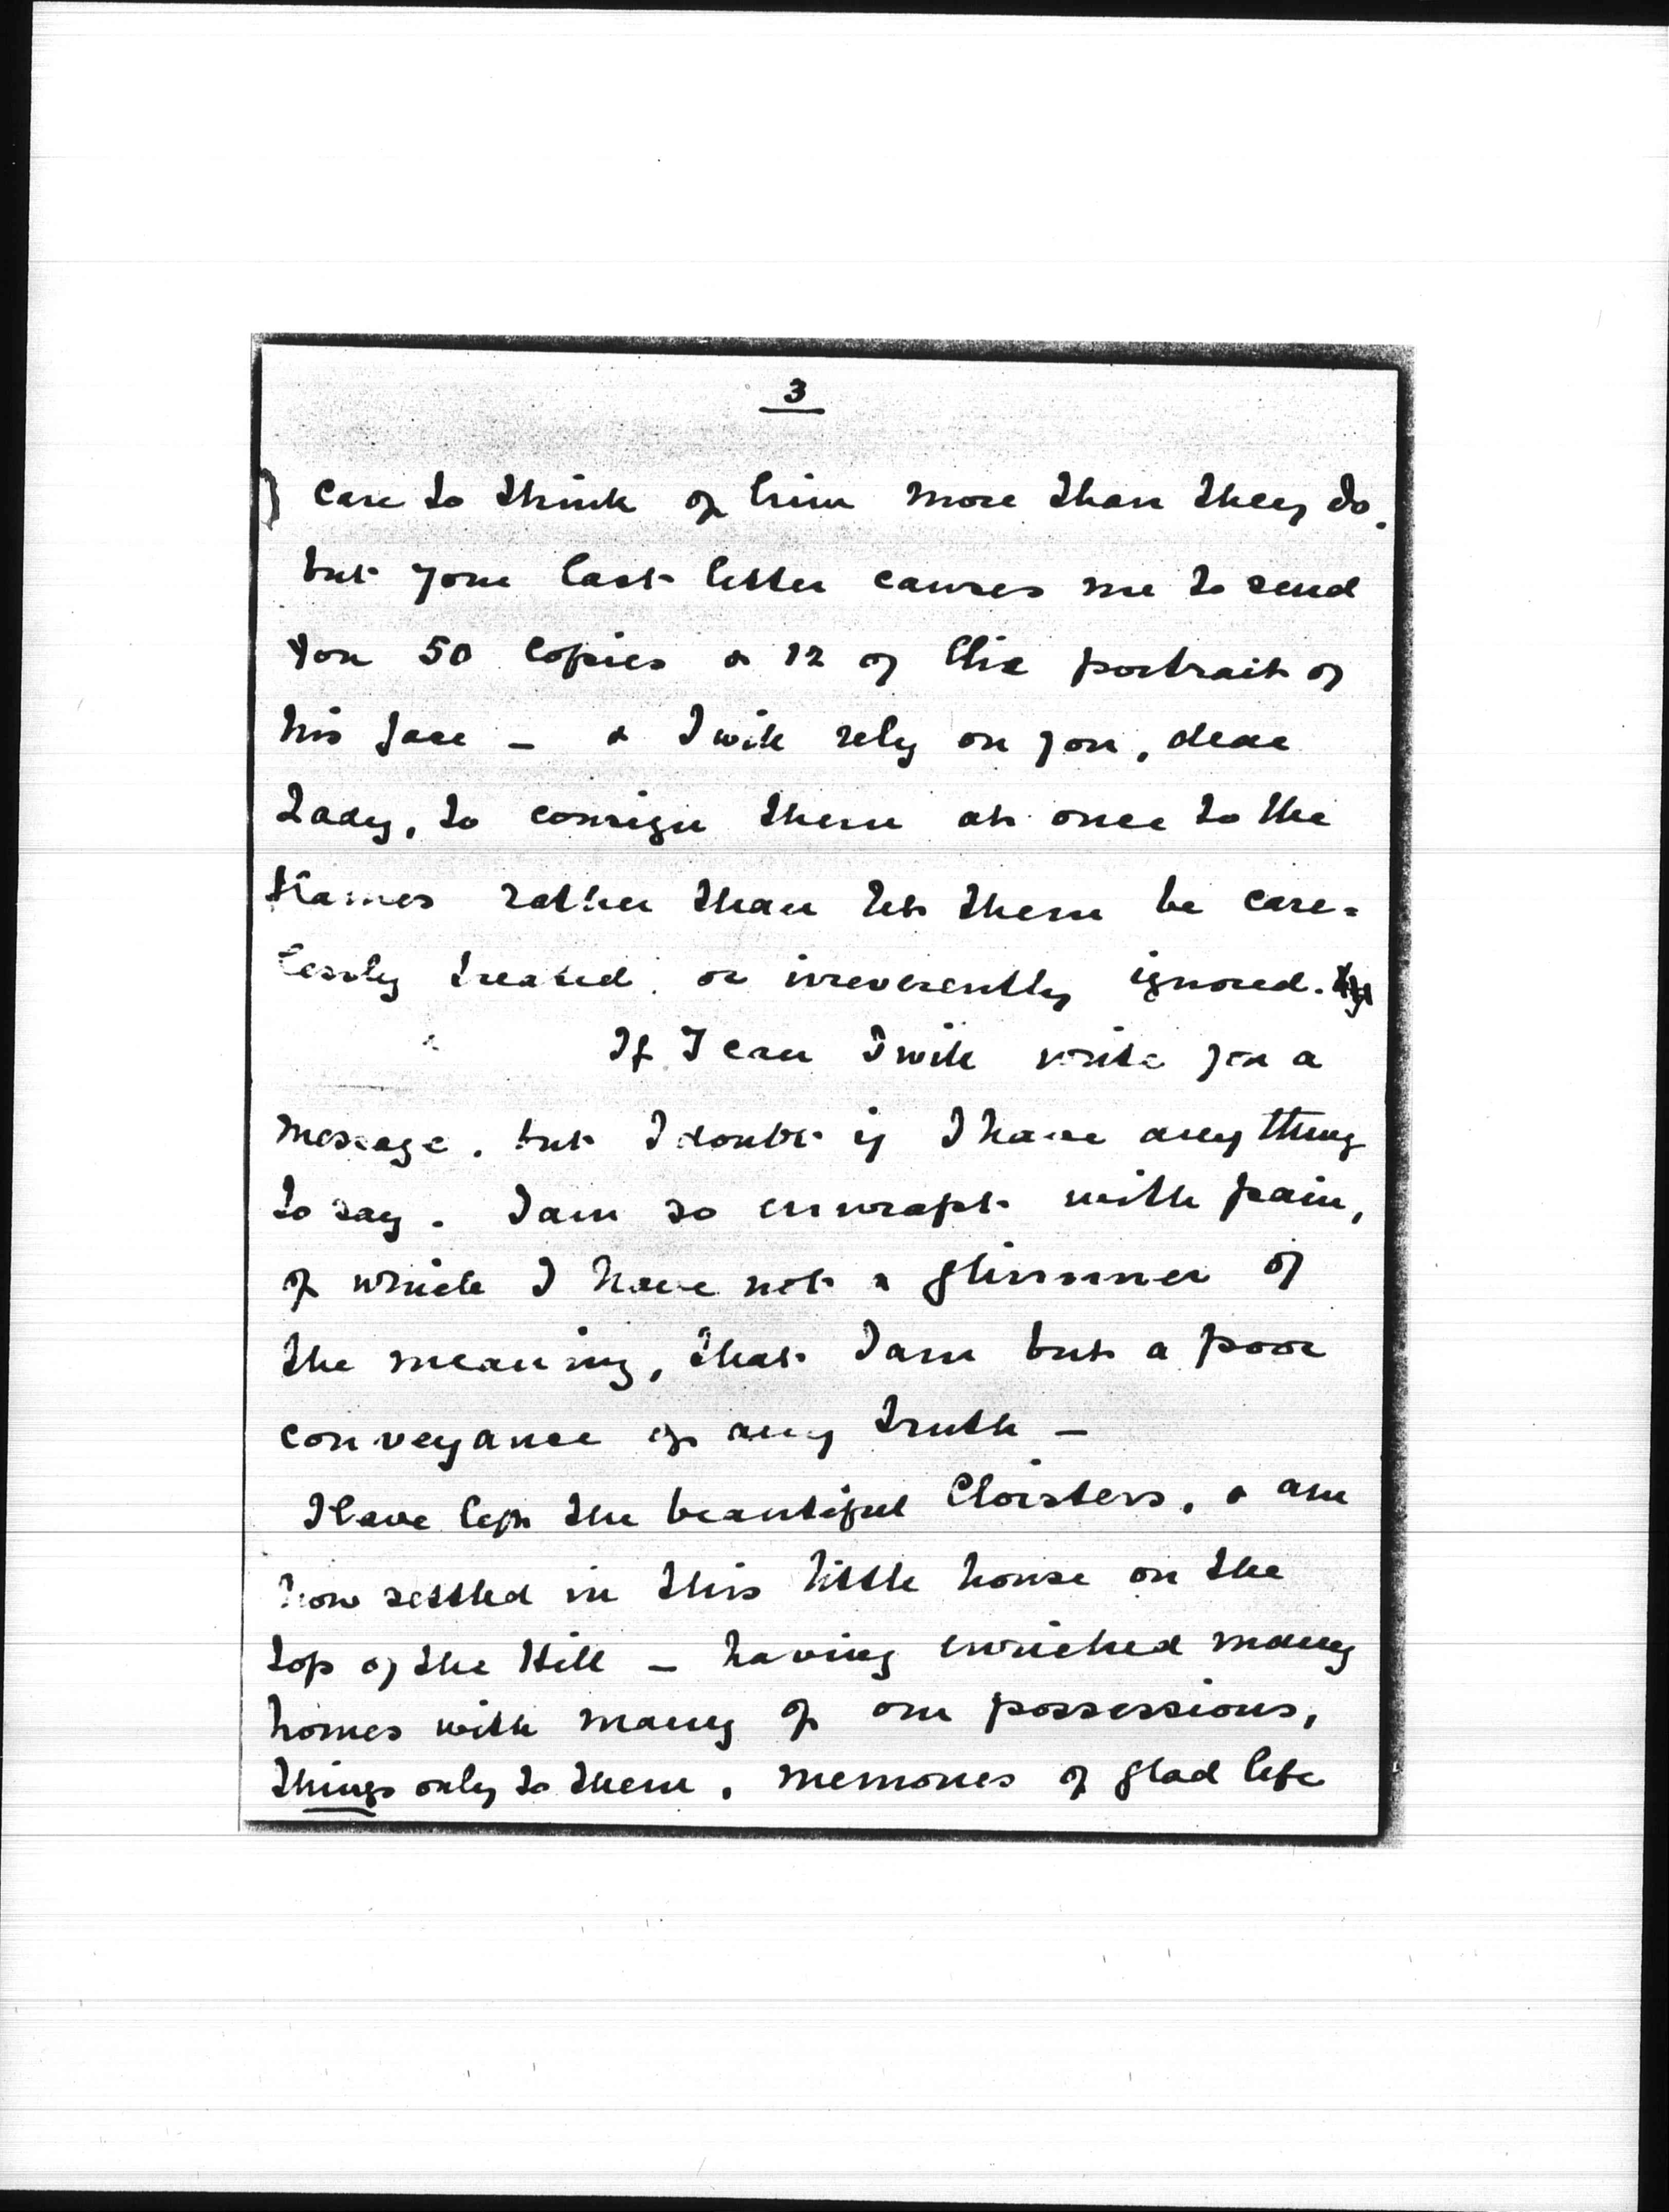 3
care to think of him more than they do,
but your last letter causes me to send
you 50 copies & 12 of the portrait of
his face – & I will rely on you, dear
Lady, to consign them at once to the
flames rather than let them be care-
lessly treated or irreverently ignored.
If I can I will write you a
message, but I doubt if I have any thing
to say. I am so enwrapt with pain,
of which I have not a glimmer of
the meaning, that I am but a poor
conveyance of any truth –
I have left the beautiful Cloisters, & am
now settled in this little house on the
top of the Hill – having enriched many
homes with many of our possessions,
things only to them, memories of glad life